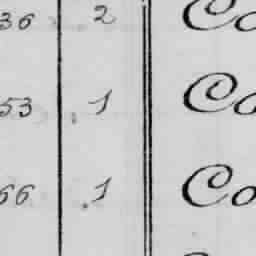 36 2 Co
53 1 Co
66 1 Co